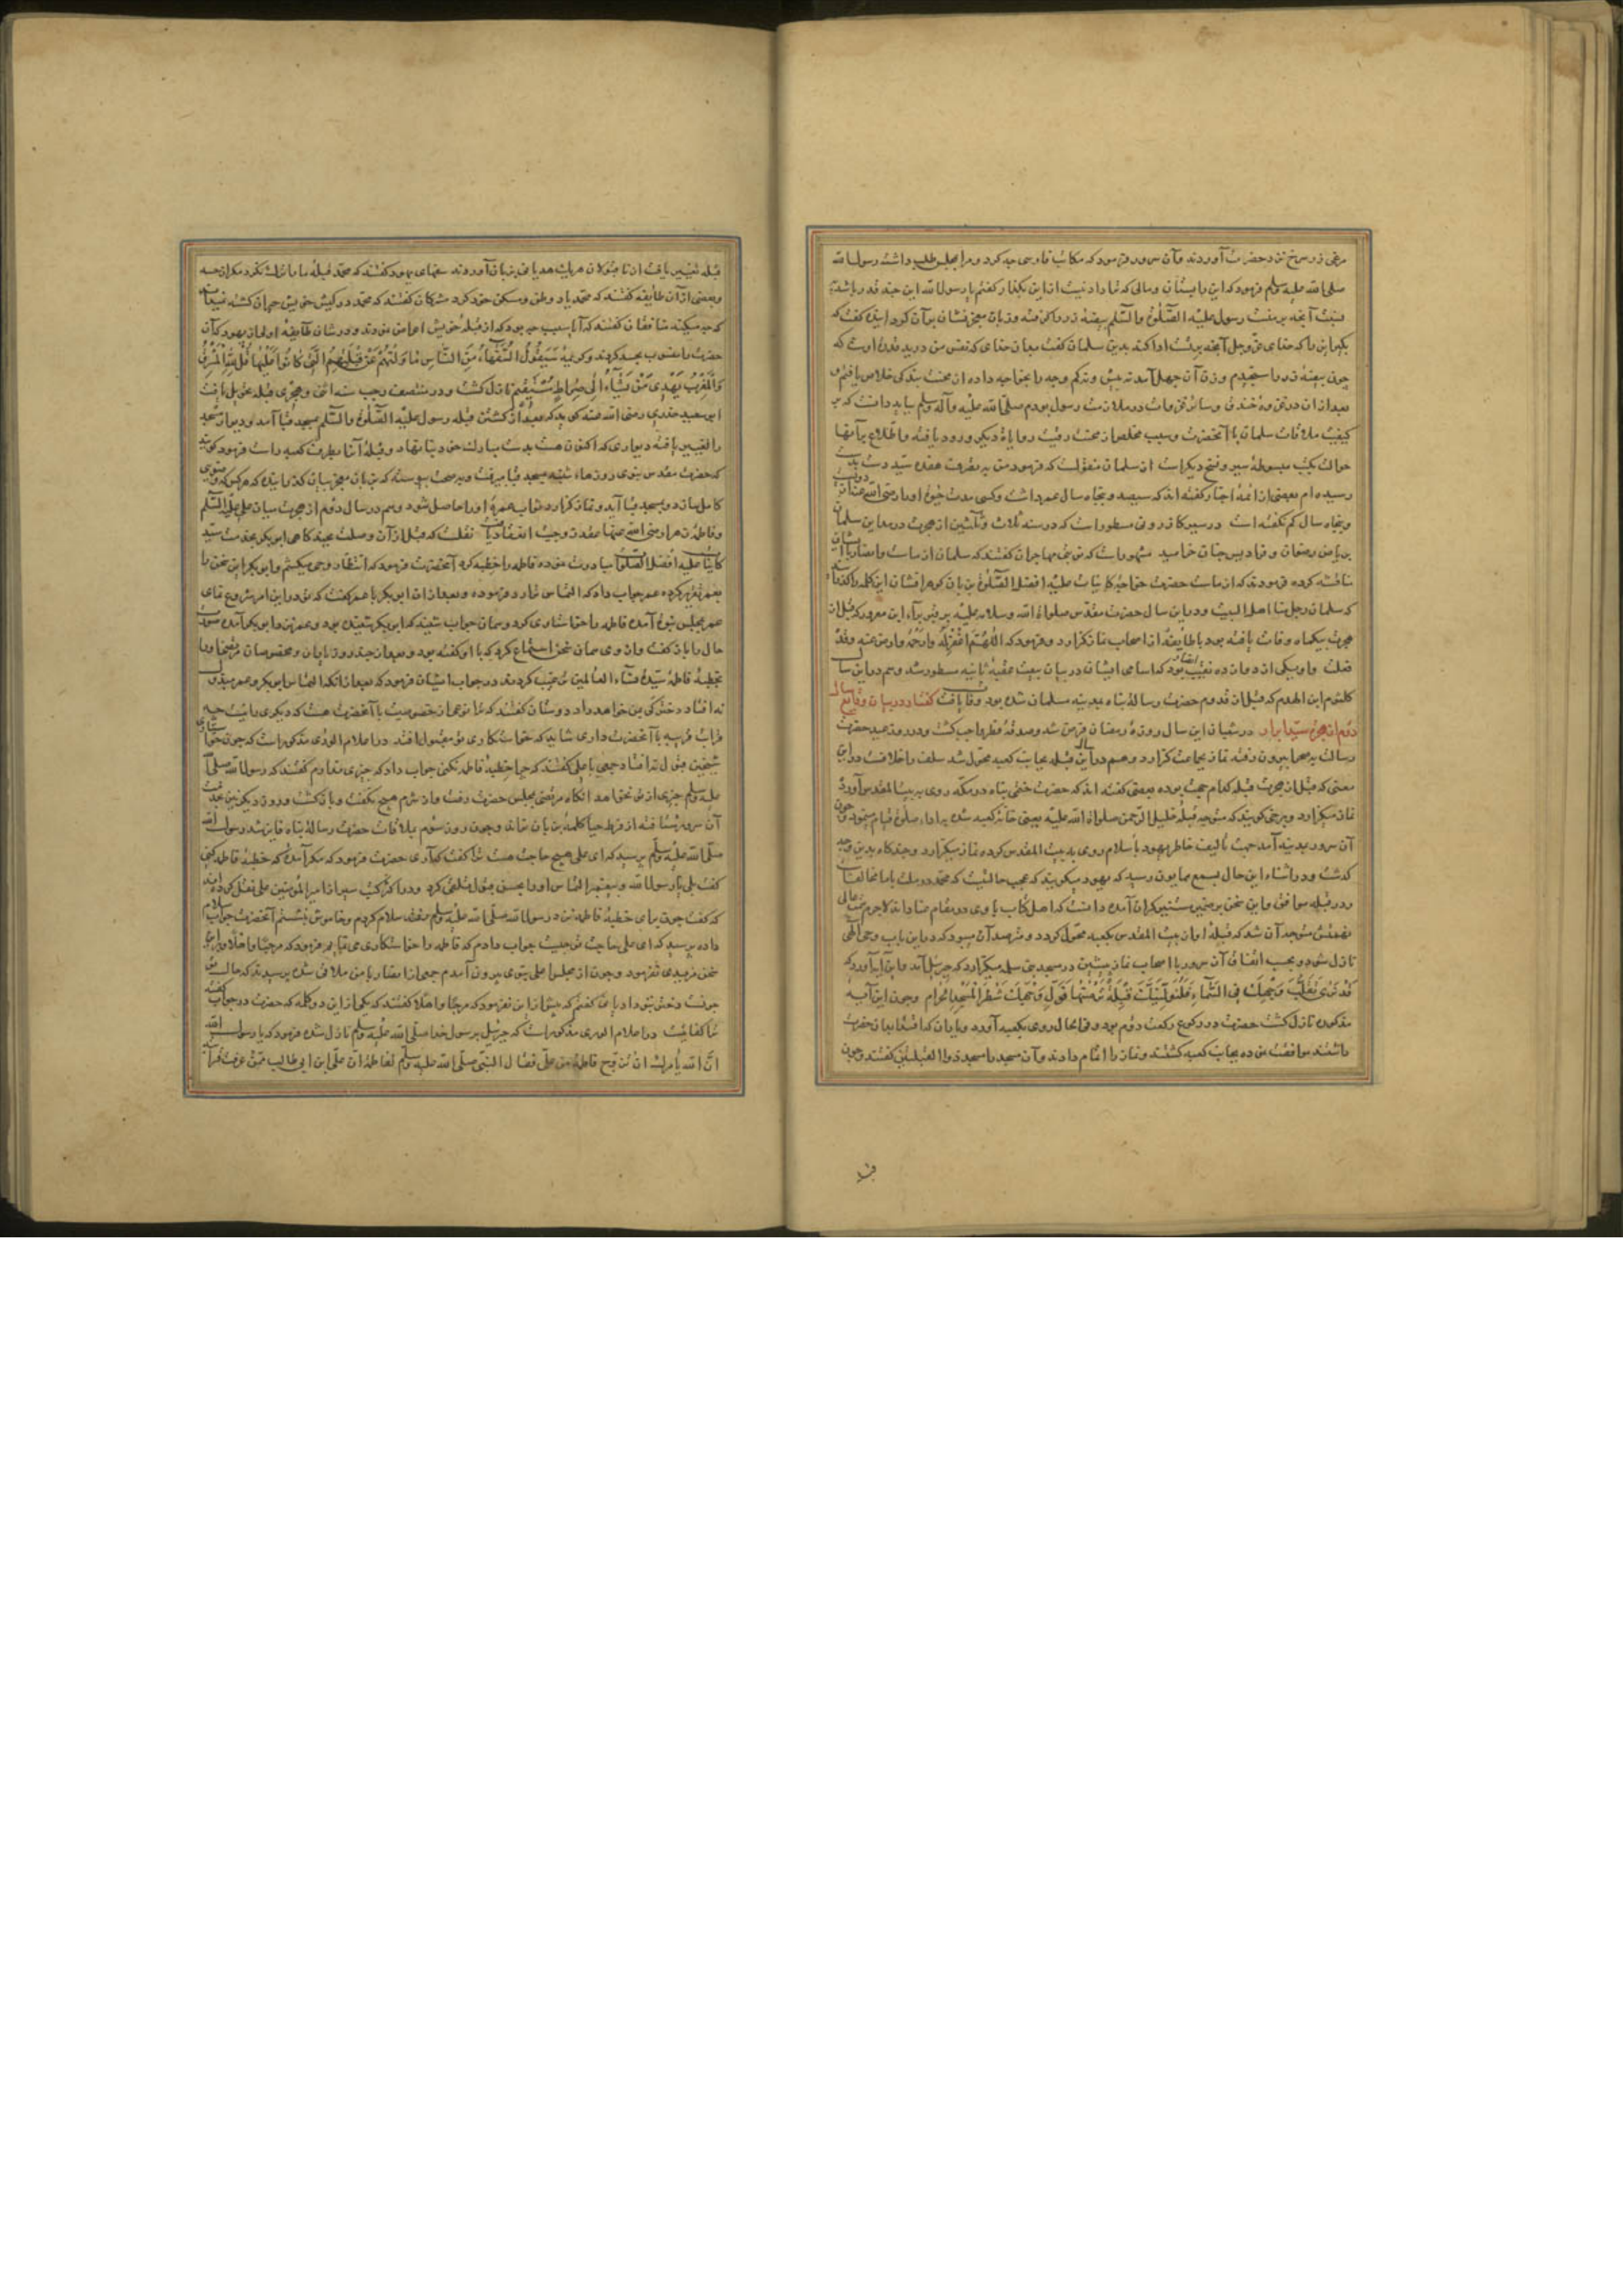 مرغی زر سرخ نزد حضرت آوردند و آن سرور فرمود که مکاتب فارسی چه کرد و مرا بمجلس طلب داشت رسول الله
صلی الله علیه وسلم فرمود که این را بستان و مالی که ترا دادنیست ازین بگذار گفتم یا رسول الله این چند زر باشد
نسبت آنچه بر منست رسول علیه الصلوة والسلم بیضه زر را گرفته و زبان معجز نشان بر آن کرد اینده گفت که
بگیر این را که خدای عز وجل آنچه بر تست ادا کند بدین سلمان گفت بدان خدای که نفس من در ید قدرت اوست که
چون بیضه زر را سنجیدم وزن آن چهل آمد نه بیش و نه کم وجه را بخواجه داده از محنت بندگی خلاص یافتم و
بعد از آن در غزوه خندق و سائر غزوات در ملازمت رسول بودم صلی الله علیه وآله وسلم بباید دانست که بر
کیفیت ملاقات سلمان با آنحضرت و سبب مخلص از محنت رقیت روایاة دیگر ورود یافته و اطلاع بر آنها
حوالت بکتب مبسوطه سیر و نسخ دیگر است از سلمان منقولست که فرمود من به بضعت عشر سید دست بدست
رسیده ام و بعضی از ائمه اخبار گفته اند که سیصد و پنجاه سال عمر داشت و کسی مدت حیوة او را رضی الله عنه از دویست
و پنجاه سال کم نگفته است و در سیر کازرونی مسطور است که در سنه ثلاث و ثلثین از هجرت در مداین سلمان
بریاض رضوان و فرادیس جنان خرامید مشهور است که زمره مهاجران گفتند که سلمان از ماست و انصار با ایشان
مناقشه کرده فرمودند که از ماست حضرت خواجه کاینات علیه افضل الصلوة بزبان گوهر افشان این کلمه را گذراند
که سلمان رجل منا اهل البیت و در این سال حضرت مقدس صلوات الله وسلامه علیه بر قبر براء ابن معرور که قبل از
هجرت بیکماه وفات یافته بود با طایفه از اصحاب نماز گزارد و فرمود که اللهم اغفر له وارحمه وارض عنه وقد
فعلت و او یکی از دوازده نقیب انصار بود که اسامی ایشان در بیان بیعت عقبه ثانیه مسطور شد و هم در این سال
کلثوم ابن الهدم که قبل از قدوم حضرت رسالة پناه بمدینه مسلمان شده بود وفات یافت گفتار در بیان وقایع سال
دوم از هجرت سید ابرار در شعبان این سال روزه رمضان فرض شد و صدقه فطر واجب گشت و در روز عید حضرت
رسالت بصحرا بیرون رفته نماز بجماعت گزارد و هم در این سال قبله بجانب کعبه محول شد سلف را خلافست در این
معنی که قبل از هجرت قبله کدام جهت بوده بعضی گفته اند که حضرت ختمی پناه در مکه روی به بیت المقدس آورده
نماز میگزارد و برخی گویند که متوجه قبله خلیل الرحمن صلوات الله علیه یعنی خانه کعبه شده به اداء صلوة قیام مینمود و چون
آن سرور بمدینه آمد جهت تالیف خاطر یهود باسلام روی به بیت المقدس کرده نماز میگزارد و چندگاه بدین وتیره
گذشت و در اثناء این حال بسمع همایون رسید که یهود میگویند که عجب حالتیست که محمد در ملت با ما مخالفست
و در قبله موافق و این سخن بر ضمیر منیر گران آمده دانست که اهل کتاب با وی در مقام عناد اند لاجرم همت عالی
نهمتش متوجه آن شد که قبله او از بیت المقدس بکعبه محول گردد و مترصد آن میبود که در این باب وحی الهی
نازل شود و بحسب اتفاق آن سرور با اصحاب نماز پیشین در مسجد بنی سلمه میگزارد که جبرئیل آمد و این آیه آورد که
قَدْ نَرَى تَقَلُّبَ وَجْهِكَ فِي السَّمَاءِ فَلَنُوَلِّيَنَّكَ قِبْلَةً تَرْضٰهَا فَوَلِّ وَجْهَكَ شَطْرَ الْمَسْجِدِ الْحَرَامِ و چون این آیه
مذکوره نازل گشت حضرت در رکوع رکعت دوم بود و فی الحال روی بکعبه آورد و یاران که اقتدا بدان حضرت
داشتند موافقت نموده بجانب کعبه گشتند و نماز را اتمام دادند و آن مسجد را مسجد ذو القبلتین گفتند و چون
قبله تغییر یافت
بعضی از آن طایفه گفتند که محمد یاد وطن و مسکن خود کرد مشرکان گفتند که محمد در کیش خویش حیران گشته
منافقان گفتند که آیا سبب چه بود که از قبله خویش اعراض نمودند و در شان طایفه اولی از یهود که آن
حضرت را منسوب بحسد کردند و کریمه سَيَقُولُ السُّفَهَاءُ مِنَ النَّاسِ مَا وَلّٰهُمْ عَنْ قِبْلَتِهِمُ الَّتِي كَانُوا عَلَيْهَا قُلْ لِلّٰهِ الْمَشْرِقُ
وَالْمَغْرِبُ يَهْدِي مَنْ يَشَاءُ اِلٰى صِرَاطٍ مُسْتَقِيمٍ نازل گشت و در منتصف رجب سنه اثنی و هجری قبله تحویل یافت
ابی سعید خدری رضی الله عنه گوید که بعد از گشتن قبله رسول علیه الصلوة والسلم بمسجد قبا آمد و دیوار مسجد
را تغییر یافته دیواری که اکنون هست بدست مبارک خود بنا نهاد و قبله آنرا بطرف کعبه راست فرمود گویند
که حضرت مقدس نبوی روزهاء شنبه بمسجد قبا میرفت و بصحت پیوسته که بزبان معجز بیان گذرانیده که هر کس که وضوی
کامل سازد و بمسجد قبا آید و نماز گزارد ثواب عمرة او را حاصل شود و هم در سال دوم از هجرت میان علی علیه السلم
و فاطمه زهرا رضی الله عنها عقد زوجیت انعقاد یافت نقلست که قبل از آن وصلت بچند گاهی ابوبکر بخدمت سید
کاینات علیه افضل الصلوة مبادرت نموده فاطمه را خطبه کرد آنحضرت فرمود که انتظار وحی میکشم و ابوبکر این سخن با
عمر تقریر کرده عمر جواب داد که التماس ترا رد فرموده و بعد از آن ابوبکر با عمر گفت که تو در این امر شروع نمای
عمر بمجلس نبوی آمده فاطمه را خواستاری کرد و همان جواب شنید که ابوبکر شنیده بود و عمر نزد ابوبکر آمده صورت
حال را باز گفت و از وی همان سخن استماع کرد که با او گفته بود و بعد از چند روز یاران و مخصوصان مرتضی او را
بخطبه فاطمه سیده نساء العالمین ترغیب کردند در جواب ایشان فرمود که بعد از آنکه التماس ابوبکر و عمر مبذول
نه افتاد دختر کی بمن خواهد داد دوستان گفتند که ترا نوعی از خصوصیت با آنحضرت هست که دیگری را نیست چه
قرابت قریبه با آنحضرت داری شاید که خواستگاری تو مقبول افتد در اعلام الوری مذکور است که چون خواستگاری
شیخین قبول نه افتاد جمعی با علی گفتند که چرا خطبه فاطمه نکنی جواب داد که چیزی ندارم گفتند که رسول الله صلی الله
علیه وسلم چیزی از تو نخواهد آنگاه مرتضی بمجلس حضرت رفت و از شرم هیچ نگفت و باز گشت و روز دیگر نیز بخدمت
آن سرور شتافته از فرط حیا کلمه بر زبان نراند و چون روز سوم بملاقات حضرت رسالة پناه فایز شد رسول الله
صلی الله علیه وسلم پرسید که ای علی هیچ حاجت هست ترا گفت که آری حضرت فرمود که مگر آمده که خطبه فاطمه کنی
گفت بلی یا رسول الله و پیغمبر التماس او را بحسن قبول تلقی کرد و در اکثر کتب سیر از امیر المؤمنین علی نقل کرده اند
که گفت چون برای خطبه فاطمه نزد رسول الله صلی الله علیه وسلم رفتم سلام کردم و خاموش نشستم آنحضرت جواب سلام
داده پرسید که ای علی حاجت تو چیست جواب دادم که فاطمه را خواستگاری می نمایم فرمود که مرحبا و اهلا و برین
سخن مزیدی نفرمود و چون از مجلس اعلی نبوی بیرون آمدم جمعی از انصار با من ملاقی شده پرسیدند که حال تو
چونست
ترا کفایت در اعلام الوری مذکور است که جبرئیل بر رسول خدا صلی الله علیه وسلم نازل شده فرمود که یا رسول الله
ان الله یأمرک ان تزوج فاطمة من علی فقال النبی صلی الله علیه وسلم لفاطمة ان علی ابن ابی طالب ممن عرفت قرابته